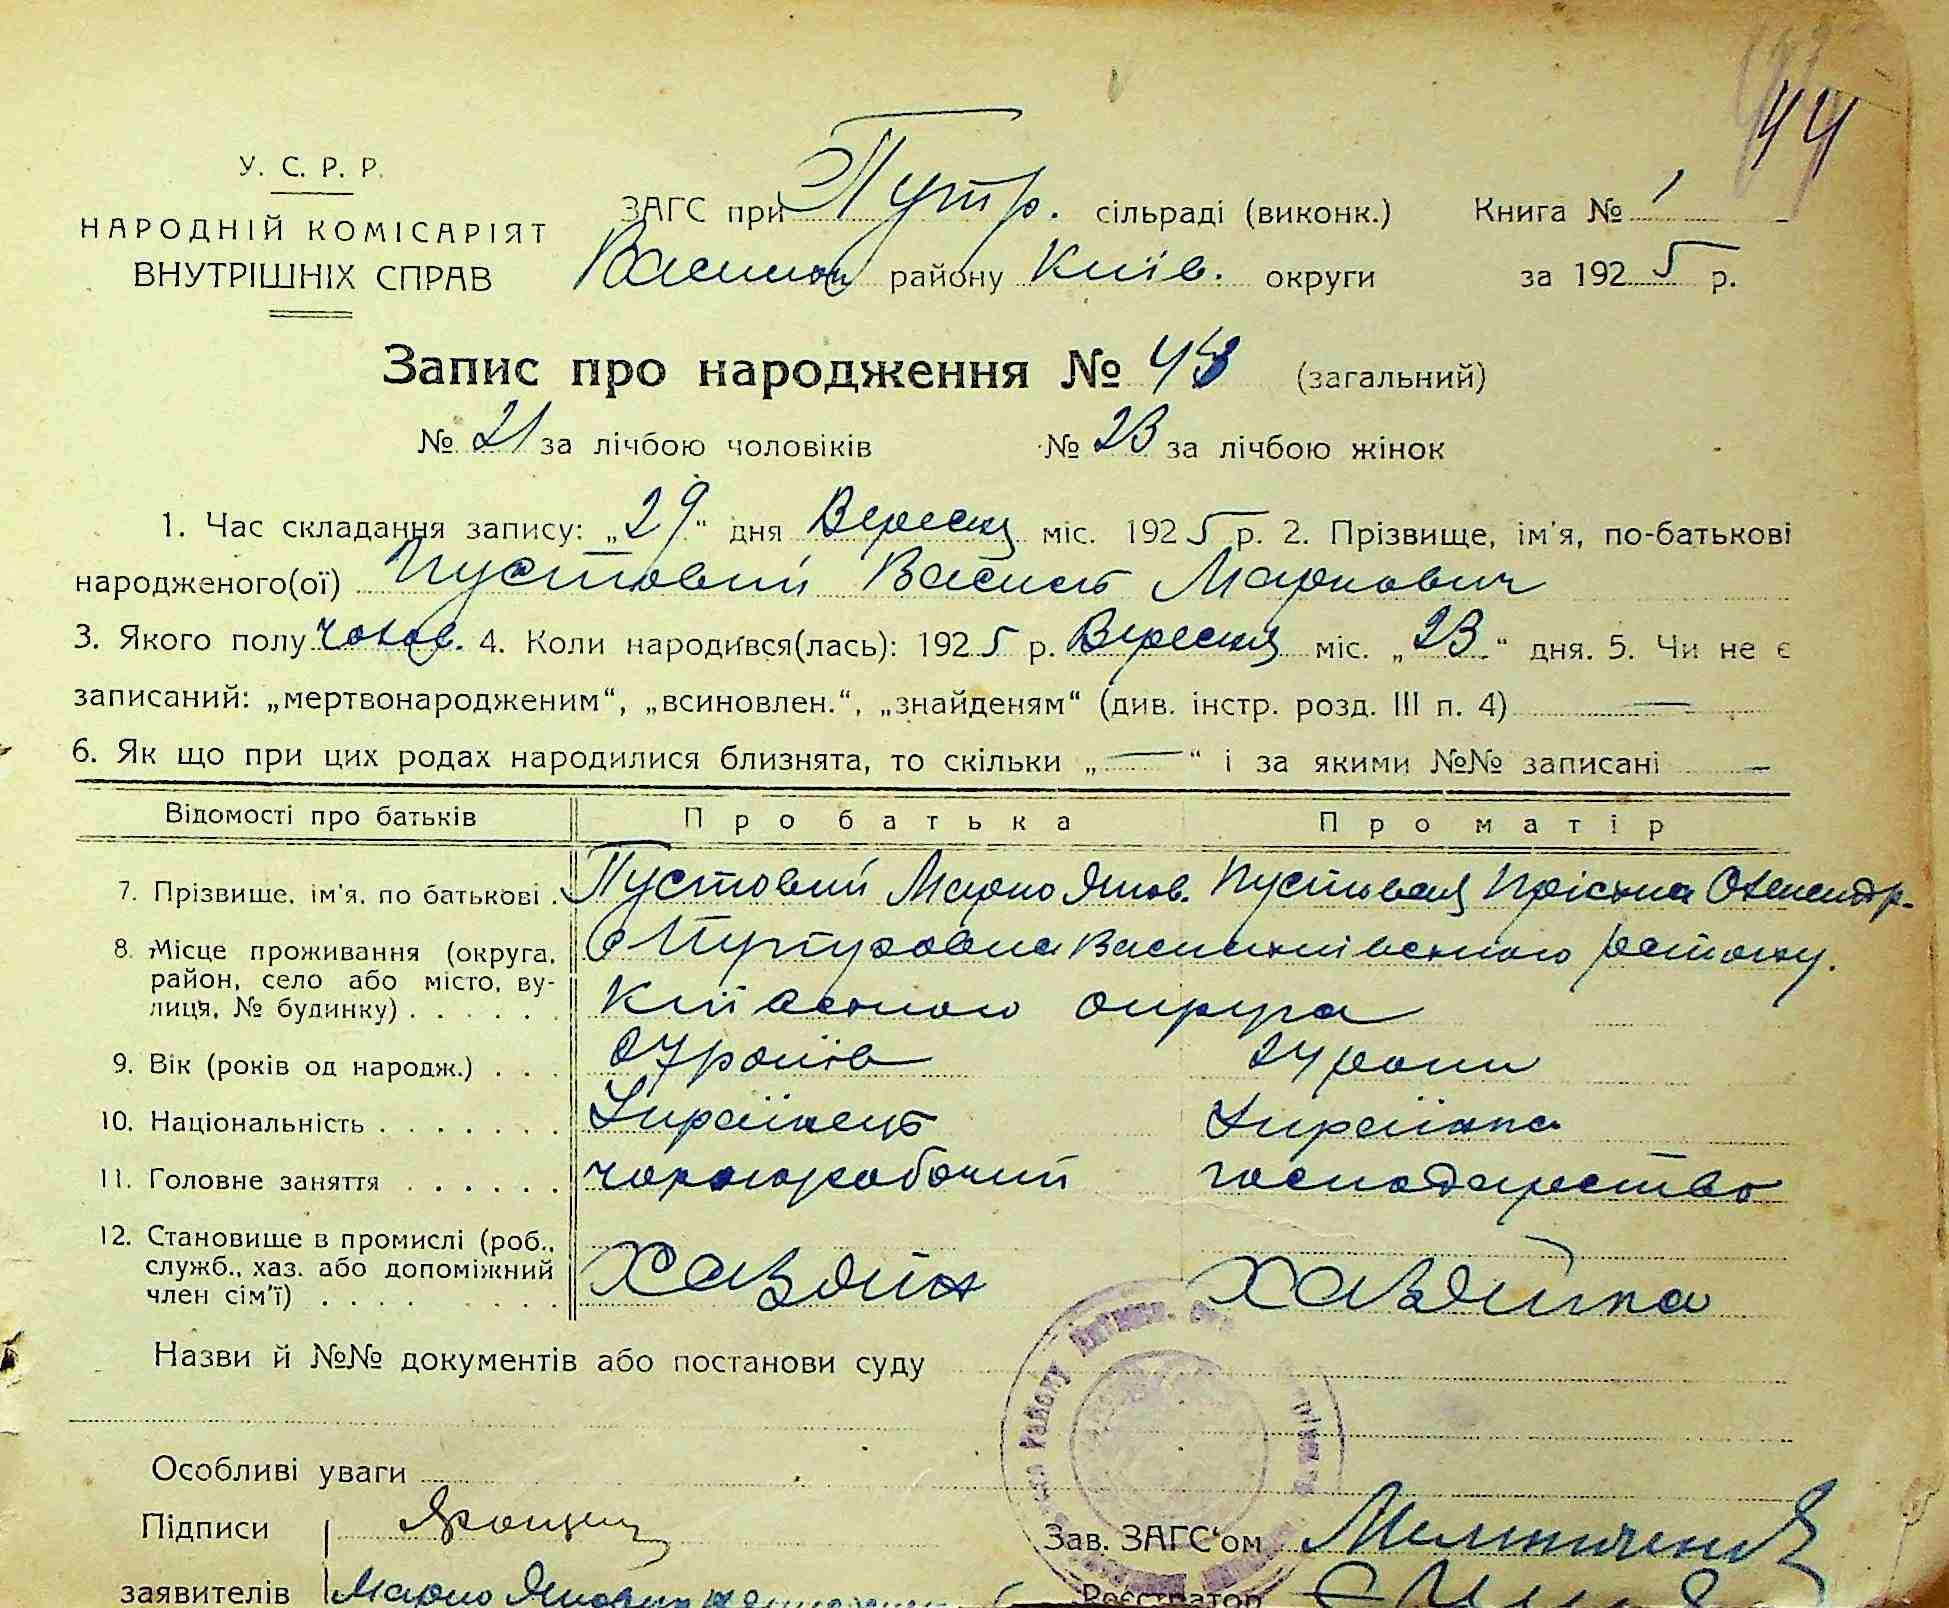 44
У. С. Р. Р.
НАРОДНІЙ КОМІСАРІЯТ
ВНУТРІШНІХ СПРАВ
ЗАГС при Путр. сільраді (виконк.) Книга № 1
району Київ. округи за 1925 р.
Запис про народження № 43 (загальний)
№ 21 за лічбою чоловіків № 23 за лічбою жінок
1. Час складання запису: „29“ дня Вересня міс. 1925 р. 2. Прізвище, ім'я, по-батькові
народженого(ої) Пустовий Василь Маркович
3. Якого полу чолов. 4. Коли народився(лась): 1925 р. Вересня міс. „23“ дня. 5. Чи не є
записаний: „мертвонародженим“, „всиновлен.“, „знайденям“ (див. інстр. розд. III п. 4) —
6. Як що при цих родах народилися близнята, то скільки „—“ і за якими №№ записані —
Відомості про батьків Про батька Про матір
7. Прізвище, ім'я, по батькові . Пустовий Марко Яков. Пустовая Олександр.
8. Місце проживання (округа, район, село або місто, вулиця, № будинку) . . . . . .
с Васильківського району.
Київського округа
9. Вік (років од народж.) . . . 27 років 24 роки
10. Національність . . . . . . . Українець Українка
11. Головне заняття . . . . . . чорноробочий господарство
12. Становище в промислі (роб., служб., хаз. або допоміжний член сім'ї) . . . . . . . . Хазяїн Хазяйка
Назви й №№ документів або постанови суду
Особливі уваги
Підписи Зав. ЗАГС'ом
заявителів Марко Реєстратор